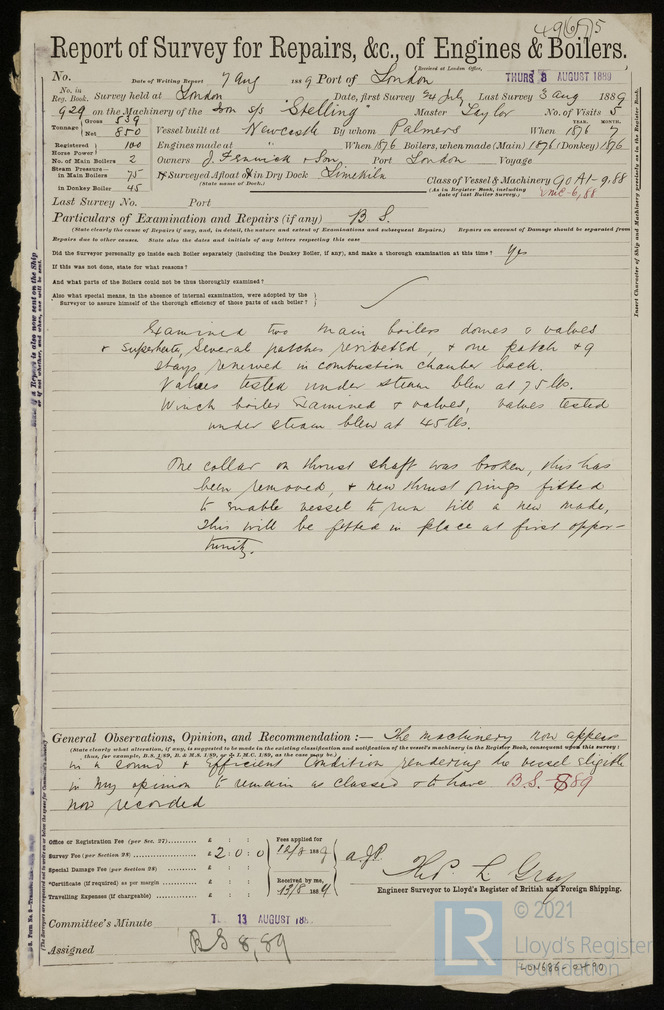 49675
Report of Survey for Repairs, &c., of Engines & Boilers.
(Received at London Office, THURS 8 AUGUST 1889)
No. Date of Writing Report 7 Aug 1889 Port of London
No. in Reg. Book. Survey held at London Date, first Survey 24 July Last Survey 3 Aug 1889
929 on the Machinery of the Iron s/s "Stelling" Master Taylor No. of Visits 5
Tonnage Gross 539 Net 850 Vessel built at Newcastle By whom Palmers When 1876 7 YEAR. MONTH.
Registered Horse Power 100 Engines made at When 1876 Boilers, when made (Main) 1876 (Donkey) 1876
No. of Main Boilers 2 Owners J. Fenwick & Son Port London Voyage
Steam Pressure— in Main Boilers 75 Surveyed Afloat or in Dry Dock Limekiln Class of Vessel & Machinery 90 A1-9,88
in Donkey Boiler 45 (State name of Dock.) (As in Register Book, including date of last Boiler Survey.) LMC-6,88
Last Survey No. Port
Particulars of Examination and Repairs (if any) B S.
(State clearly the cause of Repairs if any, and, in detail, the nature and extent of Examinations and subsequent Repairs.) Repairs on account of Damage should be separated from
Repairs due to other causes. State also the dates and initials of any letters respecting this case
Did the Surveyor personally go inside each Boiler separately (including the Donkey Boiler, if any), and make a thorough examination at this time? Yes
If this was not done, state for what reasons?
And what parts of the Boilers could not be thoroughly examined?
Also what special means, in the absence of internal examination, were adopted by the
Surveyor to assure himself of the thorough efficiency of those parts of each boiler?
Examined two main boilers domes & valves
& Superheater, Several patches rerivetted, & one patch & 9
stays renewed in combustion chamber back.
Valves tested under steam blew at 75 lbs.
Winch boiler Examined & valves, valves tested
under steam blew at 45 lbs.
One collar on thrust shaft was broken, this has
been removed, & new thrust rings fitted
to enable vessel to run till a new made,
This will be fitted in place at first oppor-
tunity.
Insert Character of Ship and Machinery precisely as in the Register Book.
General Observations, Opinion, and Recommendation :— The machinery now appears
(State clearly what alteration, if any, is suggested to be made in the existing classification and notification of the vessel's machinery in the Register Book, consequent upon this survey;
in thus, for example, B.S. 1/89, B. & M.S. 1/89, or L.M.C. 1/89, as the case may be.)
in a sound & Efficient Condition rendering the vessel eligible
in my opinion to remain as classed & to have B.S.-8 89
now recorded
Office or Registration Fee (per Sec. 27) £ : :
Survey Fee (per Section 28) £ 2 : 0 : 0
Special Damage Fee (per Section 28) £ : :
*Certificate (if required) as per margin £ : :
Travelling Expenses (if chargeable) £ : :
Fees applied for 12/8 1889
Received by me, 13/8 1889
Thos. L Gray
Engineer Surveyor to Lloyd's Register of British and Foreign Shipping.
Committee's Minute 13 AUGUST 188
Assigned BS 8,89
© 2021
LR Lloyd's Register
Foundation
LON686-0490